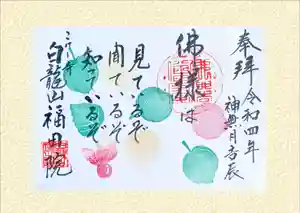 奉拝
令和四年
神無月吉辰
佛様は
見てるぞ
聞ているぞ
知っているぞ
白龍山福田院